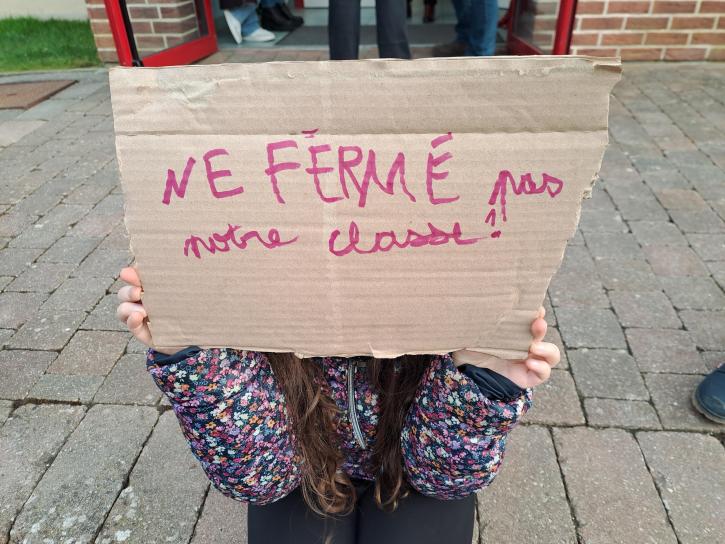 NE FERMÉ pas
notre classe !